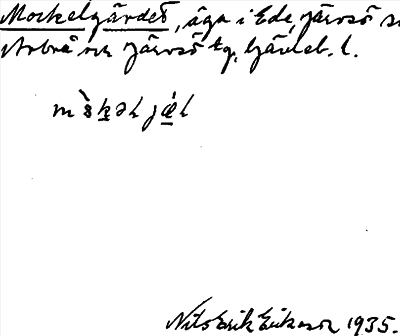 Mockelgärdet, äga i Ede, Järvsö
Arbrå och Järvsö tg, Gävleb. l.
Nils Erik Eriksson 1935.